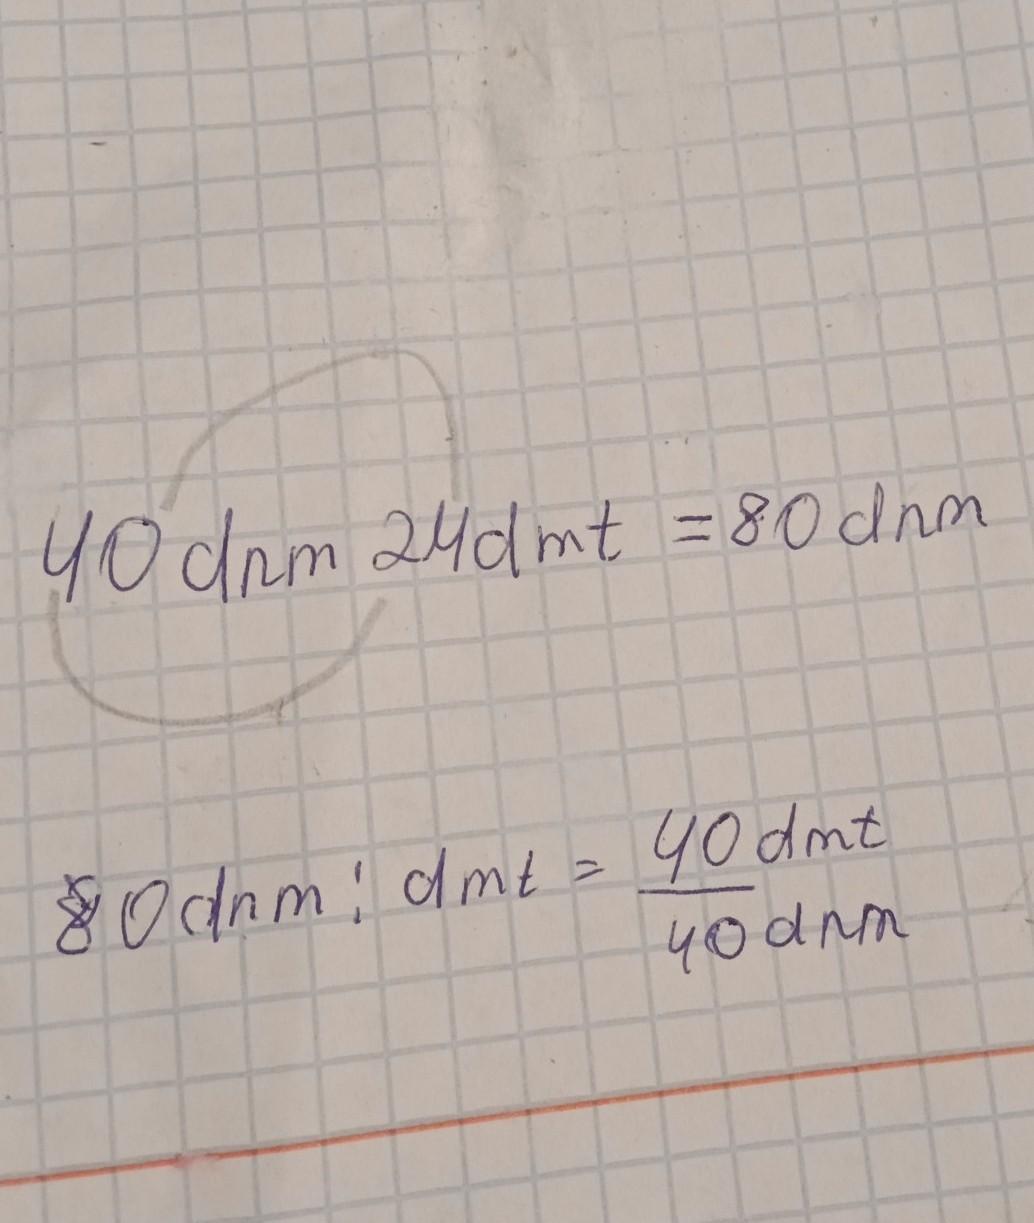 40 dnm 24dmt = 80 dnm
80 dnm : dmt = 40 dmt
40 dnm